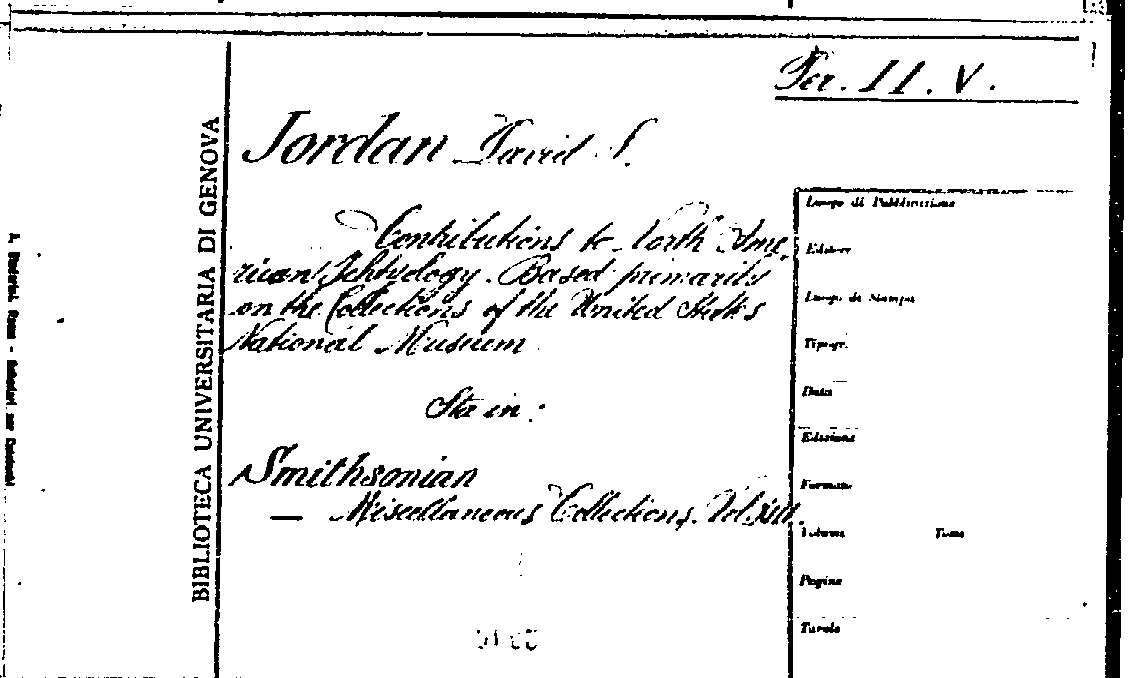 Per. II. V.
Jordan David S.
Contributions to North Ame,
rican Ichtyology. Based primarily
on the Collections of the United States
National Museum
Sta in:
Smithsonian
— Miscellaneous Collections. Vol. XIII.
BIBLIOTECA UNIVERSITARIA DI GENOVA
Luogo di Pubblicazione
Editore
Luogo di Stampa
Tipogr.
Data
Edizione
Formato
Volume Tomo
Pagine
Tavole